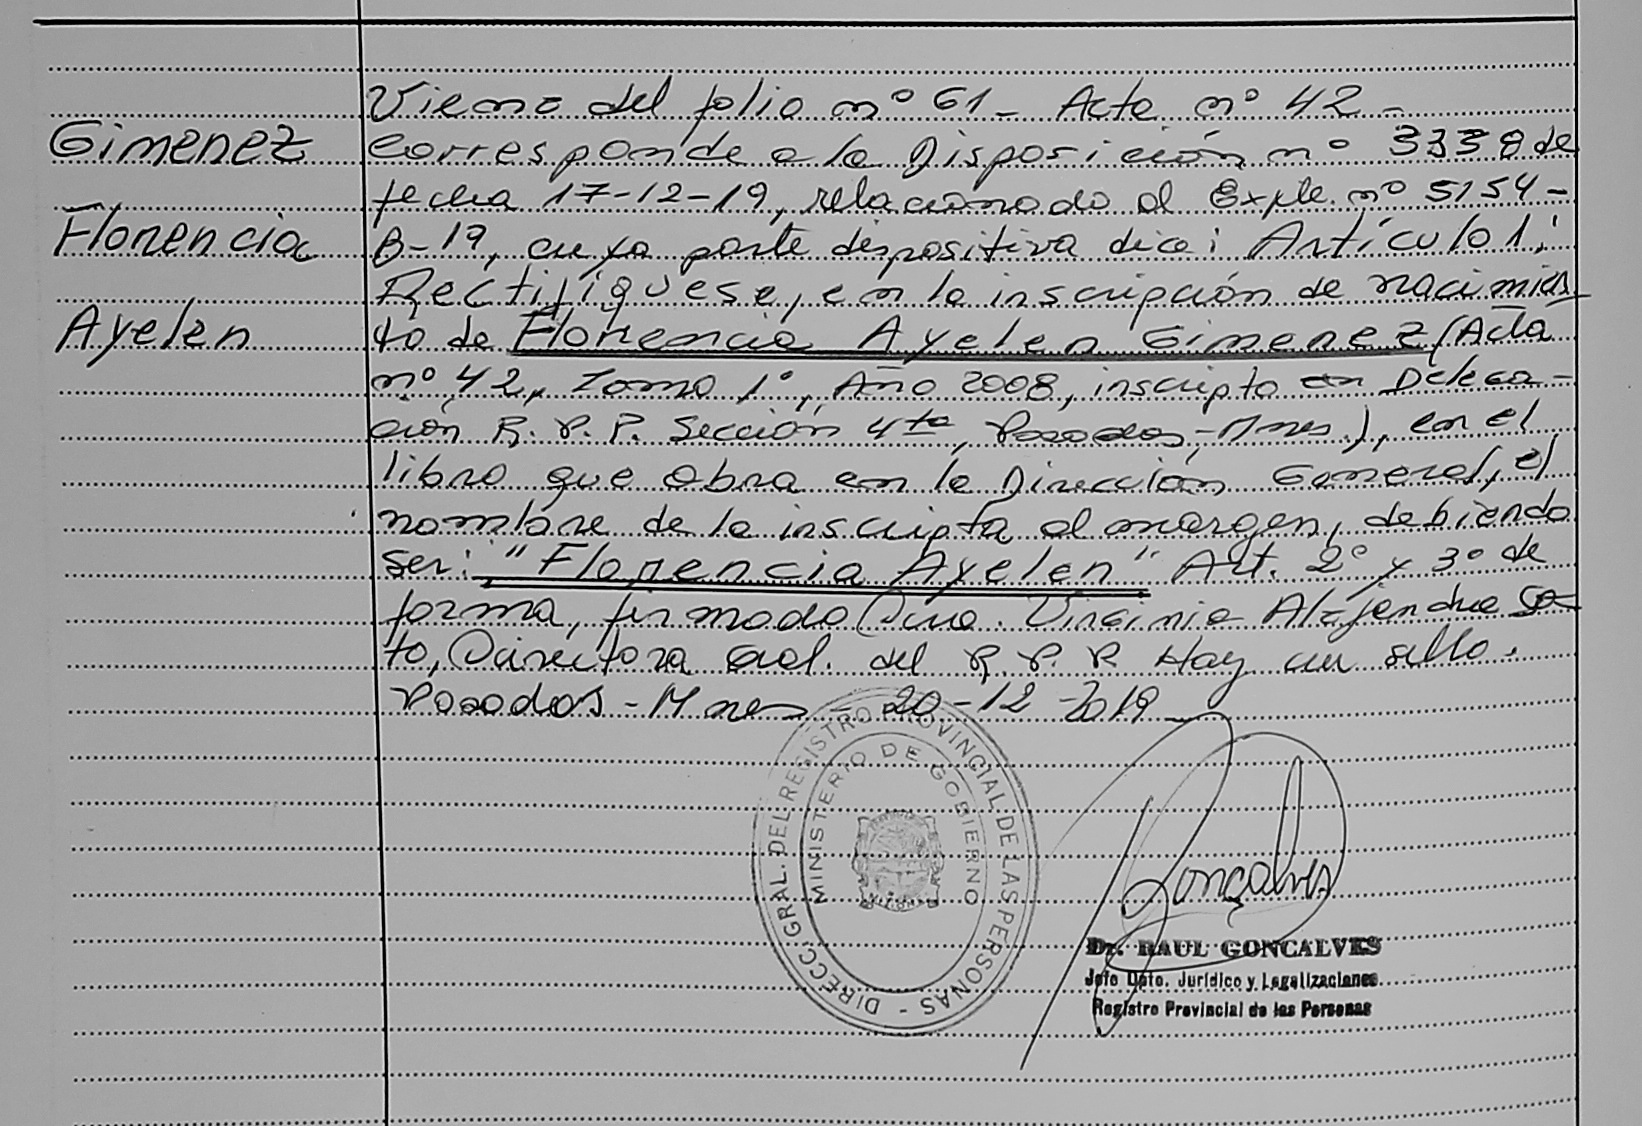 Gimenez
Florencia
Ayelen
Viene del folio nº 61 - Acta nº 42 -
Corresponde a la Disposición nº 3338 de
fecha 17-12-19, relacionado al Expte. nº 5154-
B-19, cuya parte dispositiva dice: Artículo 1:
Rectifíquese, en la inscripción de nacimien
to de Florencia Ayelen Gimenez (Acta
nº 42, Tomo 1º, Año 2008, inscripto en Delega-
ción R.P.P. Sección 4ta, Posadas, Mnes.), en el
libro que obra en la Dirección General, el
nombre de la inscripta al margen, debiendo
ser: "Florencia Ayelen" Art. 2º y 3º de
forma, firmado Virginia Alejandra So-
to, Directora Gral. del R.P.P. Hay un sello.
Posadas - Mnes - 20-12-2019
DIRECC. GRAL. DEL REGISTRO PROVINCIAL DE LAS PERSONAS -
MINISTERIO DE GOBIERNO
MISIONES
Gonçalves
Dr. RAUL GONCALVES
Jefe Dpto. Jurídico y Legalizaciones
Registro Provincial de las Personas